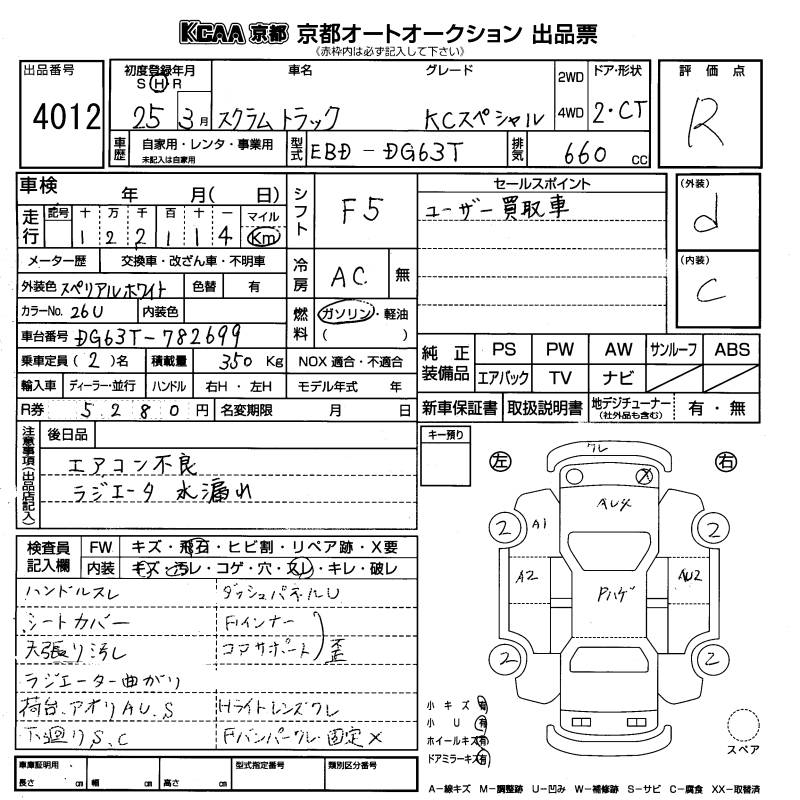 KCAA 京都 京都オートオークション 出品票
(赤枠内は必ず記入して下さい)
出品番号 初度登録年月 車名 グレード 2WD ドア・形状 評価点
S H R
4012 25 3月 スクラムトラック KCスペシャル 4WD 2・CT R
車歴 自家用・レンタ・事業用 型式 EBD-DG63T 排気 660 cc
未記入は自家用
車検 年 月( 日) シフト F5 セールスポイント (外装)
ユーザー買取車 d
走行 記号 十 万 千 百 十 一 マイル
1 2 2 1 1 4 Km
メーター歴 交換車・改ざん車・不明車 冷房 AC 無 (内装)
外装色 スペリアルホワイト 色替 有 C
カラーNo. 26U 内装色 燃料 ガソリン・軽油
車台番号 DG63T-782699 ( )
乗車定員 (2)名 積載量 350 Kg NOX 適合・不適合 純正装備品 PS PW AW サンルーフ ABS
輸入車 ディーラー・並行 ハンドル 右H・左H モデル年式 年 エアバック TV ナビ
R券 5280円 名変期限 月 日 新車保証書 取扱説明書 地デジチューナー 有・無
(社外品も含む)
注意事項(出品店記入) 後日品 キー預り
エアコン不良
ラジエータ 水漏れ
左 右
クレ
X
AU4
2 A1 2
A2 Pハゲ AU2
2 2
検査員記入欄 FW キズ・飛石・ヒビ割・リペア跡・X要
内装 キズ・汚レ・コゲ・穴・スレ・キレ・破レ
ハンドルスレ ダッシュパネルU
シートカバー Fインナー
天張り汚レ コアサポート 歪
ラジエーター曲がり
荷台、アオリAU、S Hライトレンズクレ
下廻りS、C Fバンパークレ・固定X
小キズ 有
小U 有
ホイールキズ 有
ドアミラーキズ 有
スペア
車庫証明用 型式指定番号 類別区分番号
長さ cm 幅 cm 高さ cm
A-線キズ M-調整跡 U-凹み W-補修跡 S-サビ C-腐食 XX-取替済